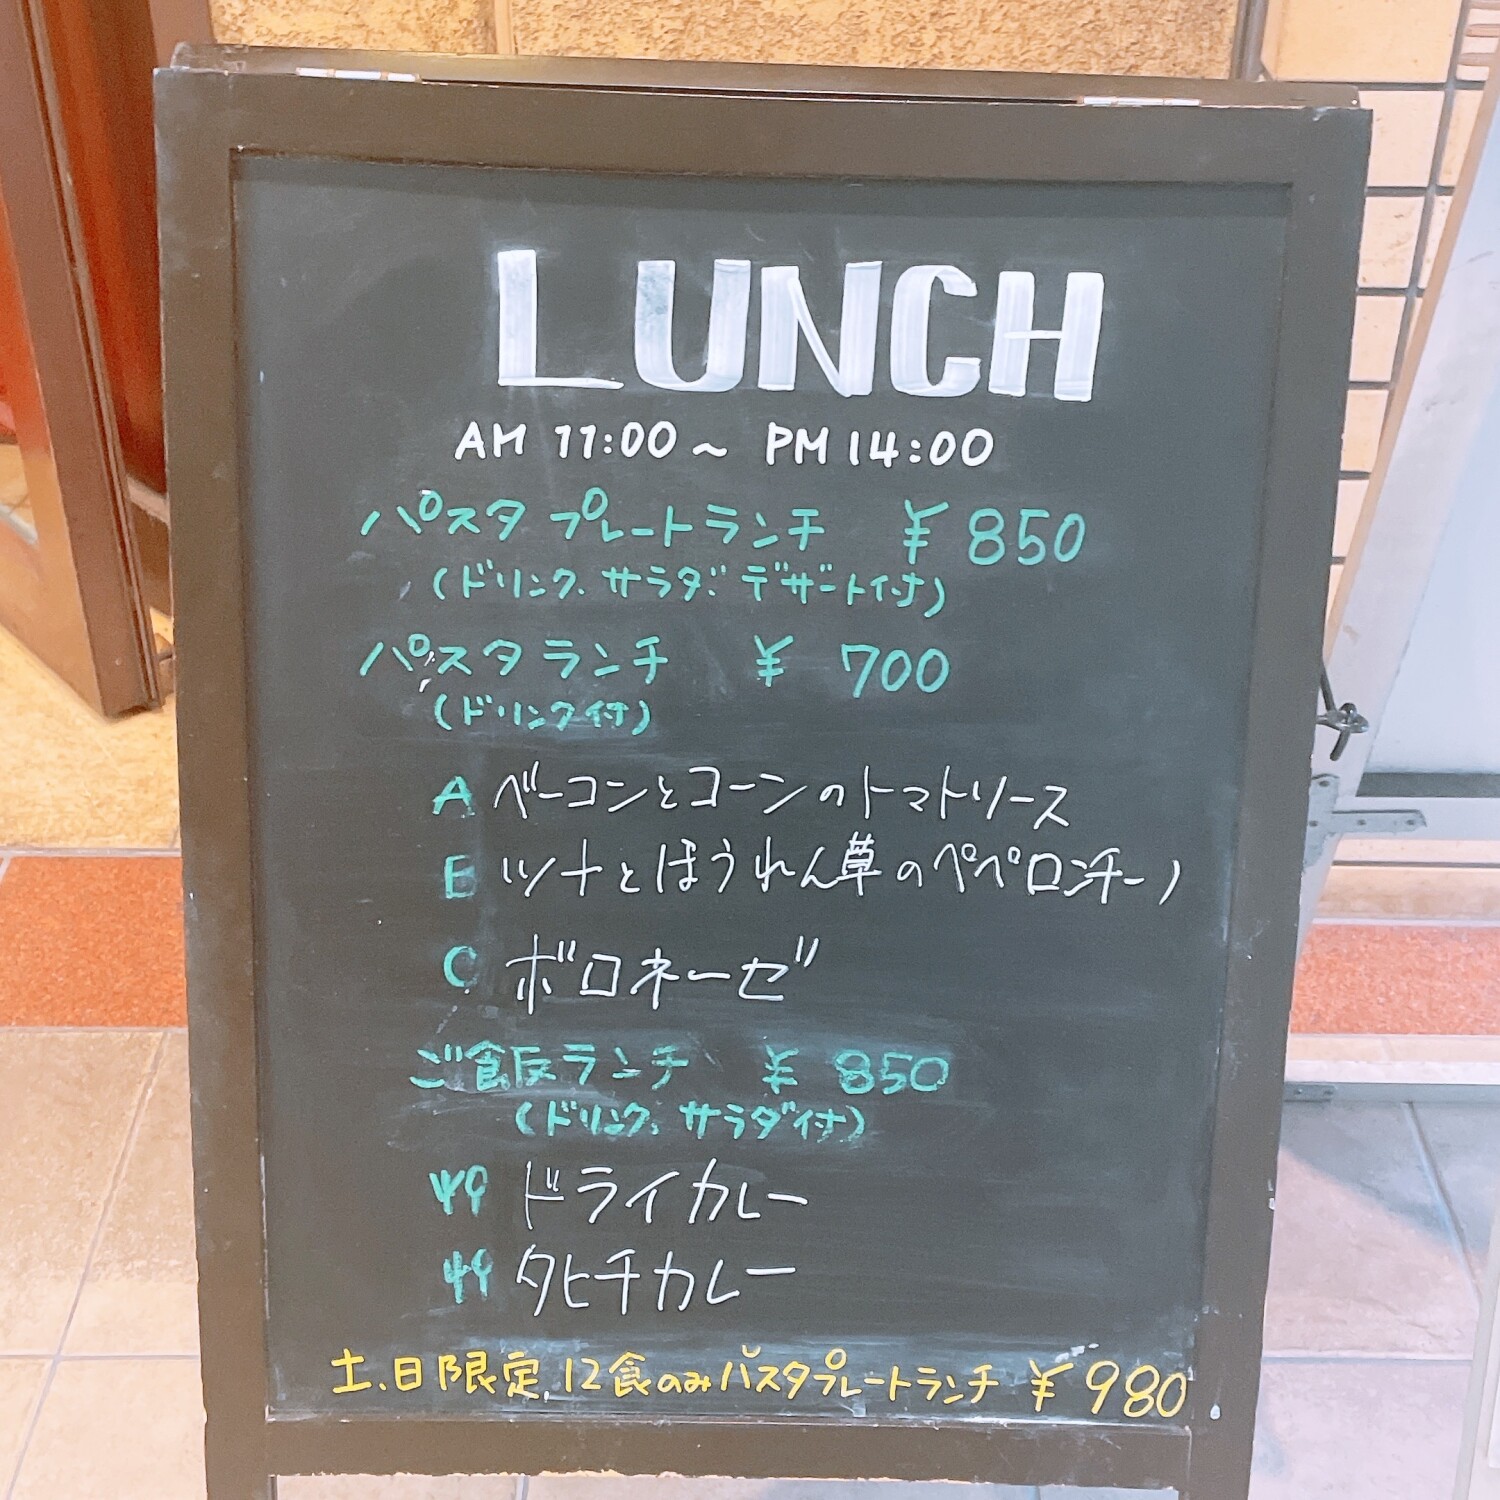 LUNCH
AM 11:00 ～ PM 14:00
パスタプレートランチ ¥850
(ドリンク、サラダ、デザート付)
パスタランチ ¥700
(ドリンク付)
A ベーコンとコーンのトマトソース
E ツナとほうれん草のペペロンチーノ
C ボロネーゼ
ご飯ランチ ¥850
(ドリンク、サラダ付)
ドライカレー
タヒチカレー
土、日限定、12食のみパスタプレートランチ ¥980